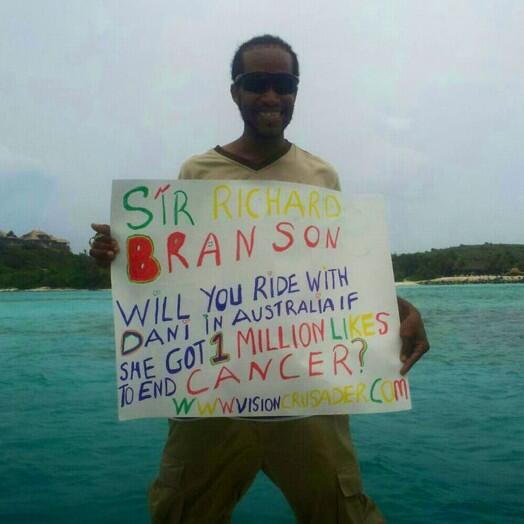 SIR RICHARD
BRANSON
WILL YOU RIDE WITH
DANI IN AUSTRALIA IF
SHE GOT 1 MILLION LIKES
TO END CANCER?
WWW.VISIONCRUSADER.COM